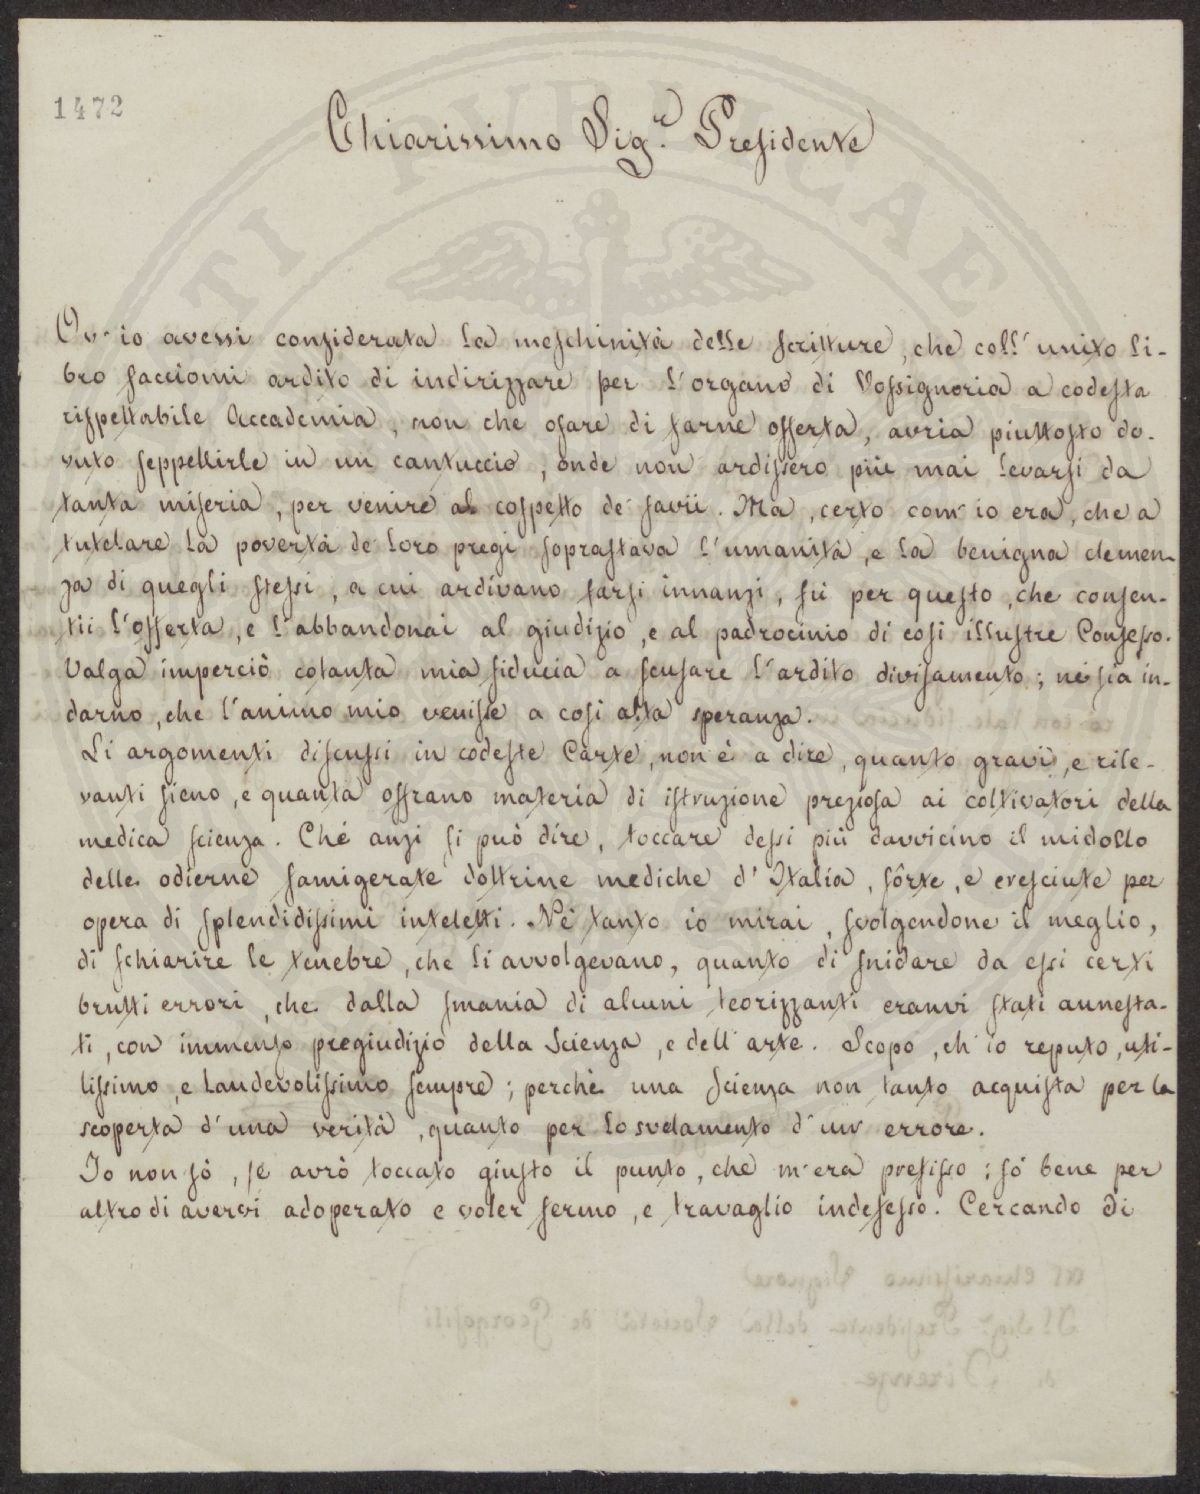 1472
Chiarissimo Sig.e Presidente
Ov' io avessi considerata la meschinità delle scritture, che coll' unito li-
bro facciomi ardito di indirizzare per l'organo di Vossignoria a codesta
rispettabile Accademia, non che osare di farne offerta, avria piuttosto do-
vuto seppellirle in un cantuccio, onde non ardissero più mai levarsi da
tanta miseria, per venire al cospetto de' savii. Ma, certo com' io era, che a
tutelare la povertà de' loro pregi soprastava l'umanità, e la benigna clemen-
za di quegli stessi, a cui ardivano farsi innanzi, fù per questo, che consen-
tii l'offerta, e l'abbandonai al giudizio, e al padrocinio di così illustre Consesso.
Valga imperciò cotanta mia fiducia a scusare l'ardito divisamento; nè sia in-
darno, che l'animo mio venisse a così alta speranza.
Li argomenti discussi in codeste Carte, non è a dire, quanto gravi, e rile-
vanti sieno, e quanta offrano materia di istruzione preziosa ai coltivatori della
medica scienza. Ché anzi si può dire, toccare dessi più davvicino il midollo
delle odierne famigerate dottrine mediche d' Italia, sôrte, e cresciute per
opera di splendidissimi inteletti. Nè tanto io mirai, svolgendone il meglio,
di schiarire le tenebre, che li avvolgevano, quanto di snidare da essi certi
brutti errori, che dalla smania di alcuni teorizzanti eranvi stati annesta-
ti, con immenso pregiudizio della Scienza, e dell' arte. Scopo, ch' io reputo, uti-
lissimo, e laudevolissimo sempre; perchè una scienza non tanto acquista per la
scoperta d' una verità, quanto per lo svelamento d' un errore.
Io non sò, se avrò toccato giusto il punto, che m' era prefisso; sò bene per
altro di avervi adoperato e voler fermo, e travaglio indefesso. Cercando di
Al Chiarissimo Signore
Il Sig.r Presidente della Società de' Georgofili
di Firenze.